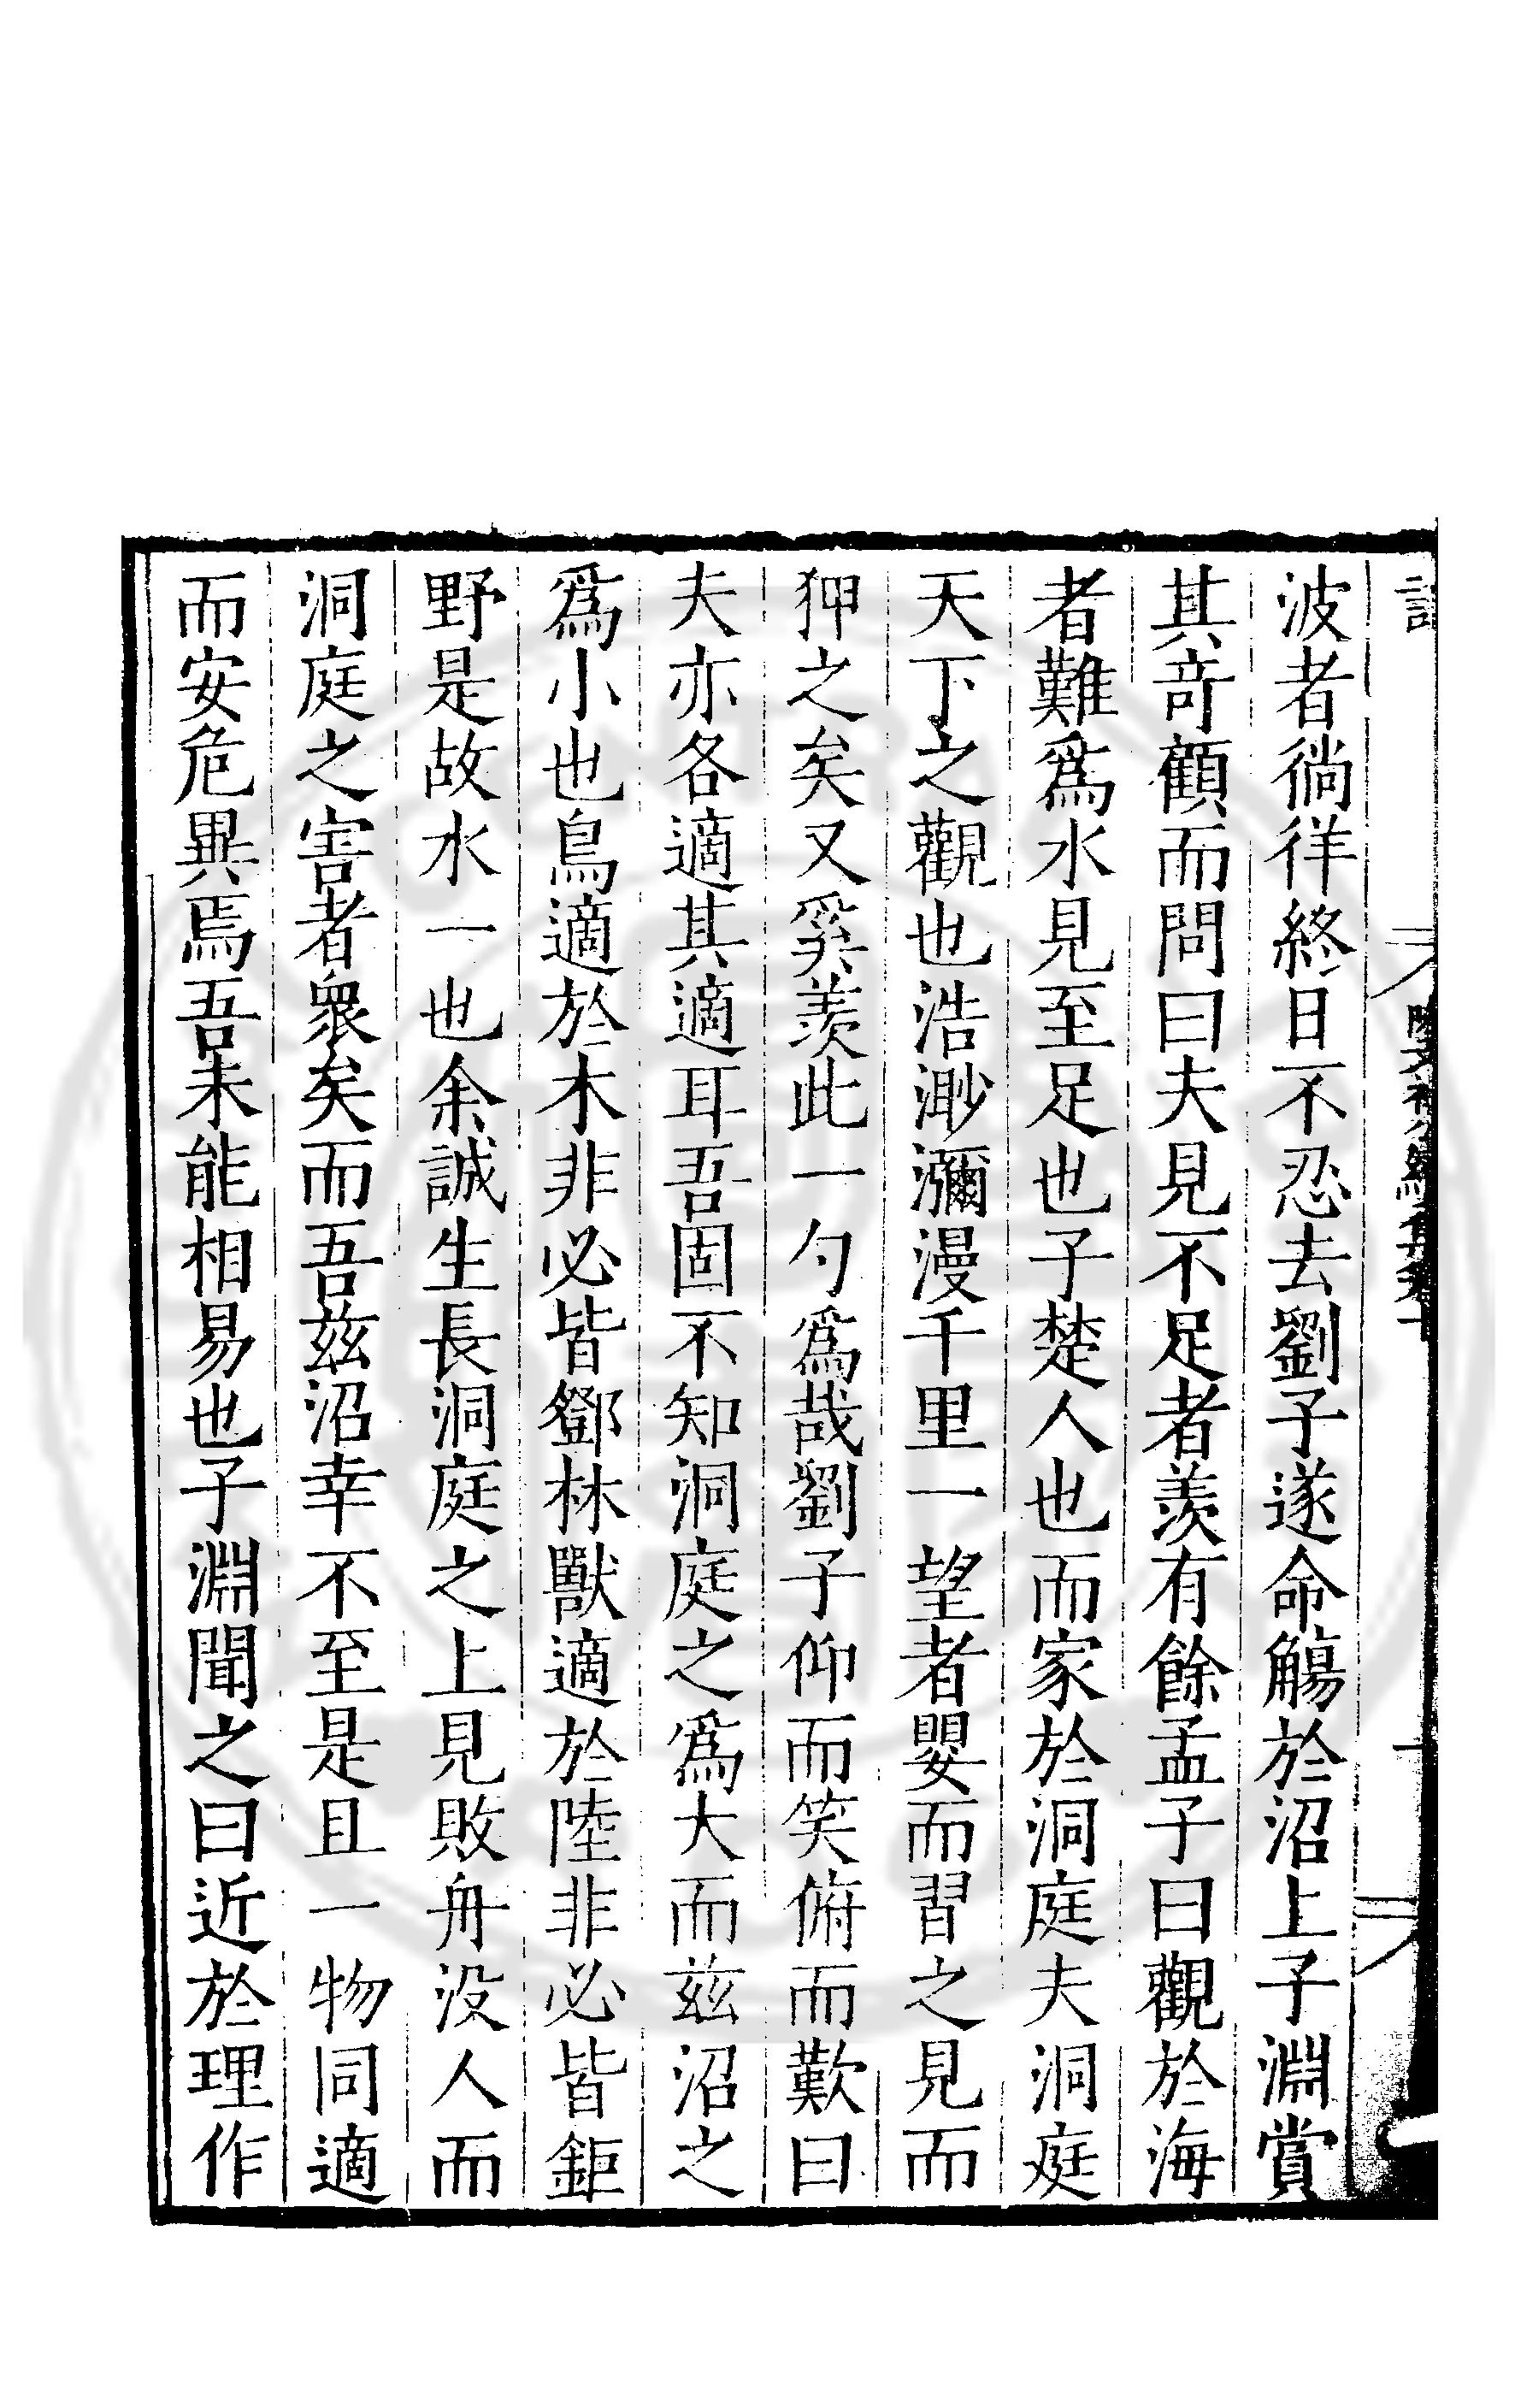 波者徜徉終日不忍去劉子遂命觴於沼上子淵賞
其竒顧而問曰夫見不足者羨有餘孟子曰觀於海
者難爲水見至足也子楚人也而家於洞庭夫洞庭
天下之觀也浩渺瀰漫千里一望者嬰而習之見而
狎之矣又奚羨此一勺爲哉劉子仰而笑俯而歎曰
夫亦各適其適耳吾固不知洞庭之爲大而兹沼之
爲小也鳥適於木非必皆鄧林獸適於陸非必皆鉅
野是故水一也余誠生長洞庭之上見敗舟没人而
洞庭之害者衆矣而吾兹沼幸不至是且一物同適
而安危異焉吾未能相易也子淵聞之曰近於理作